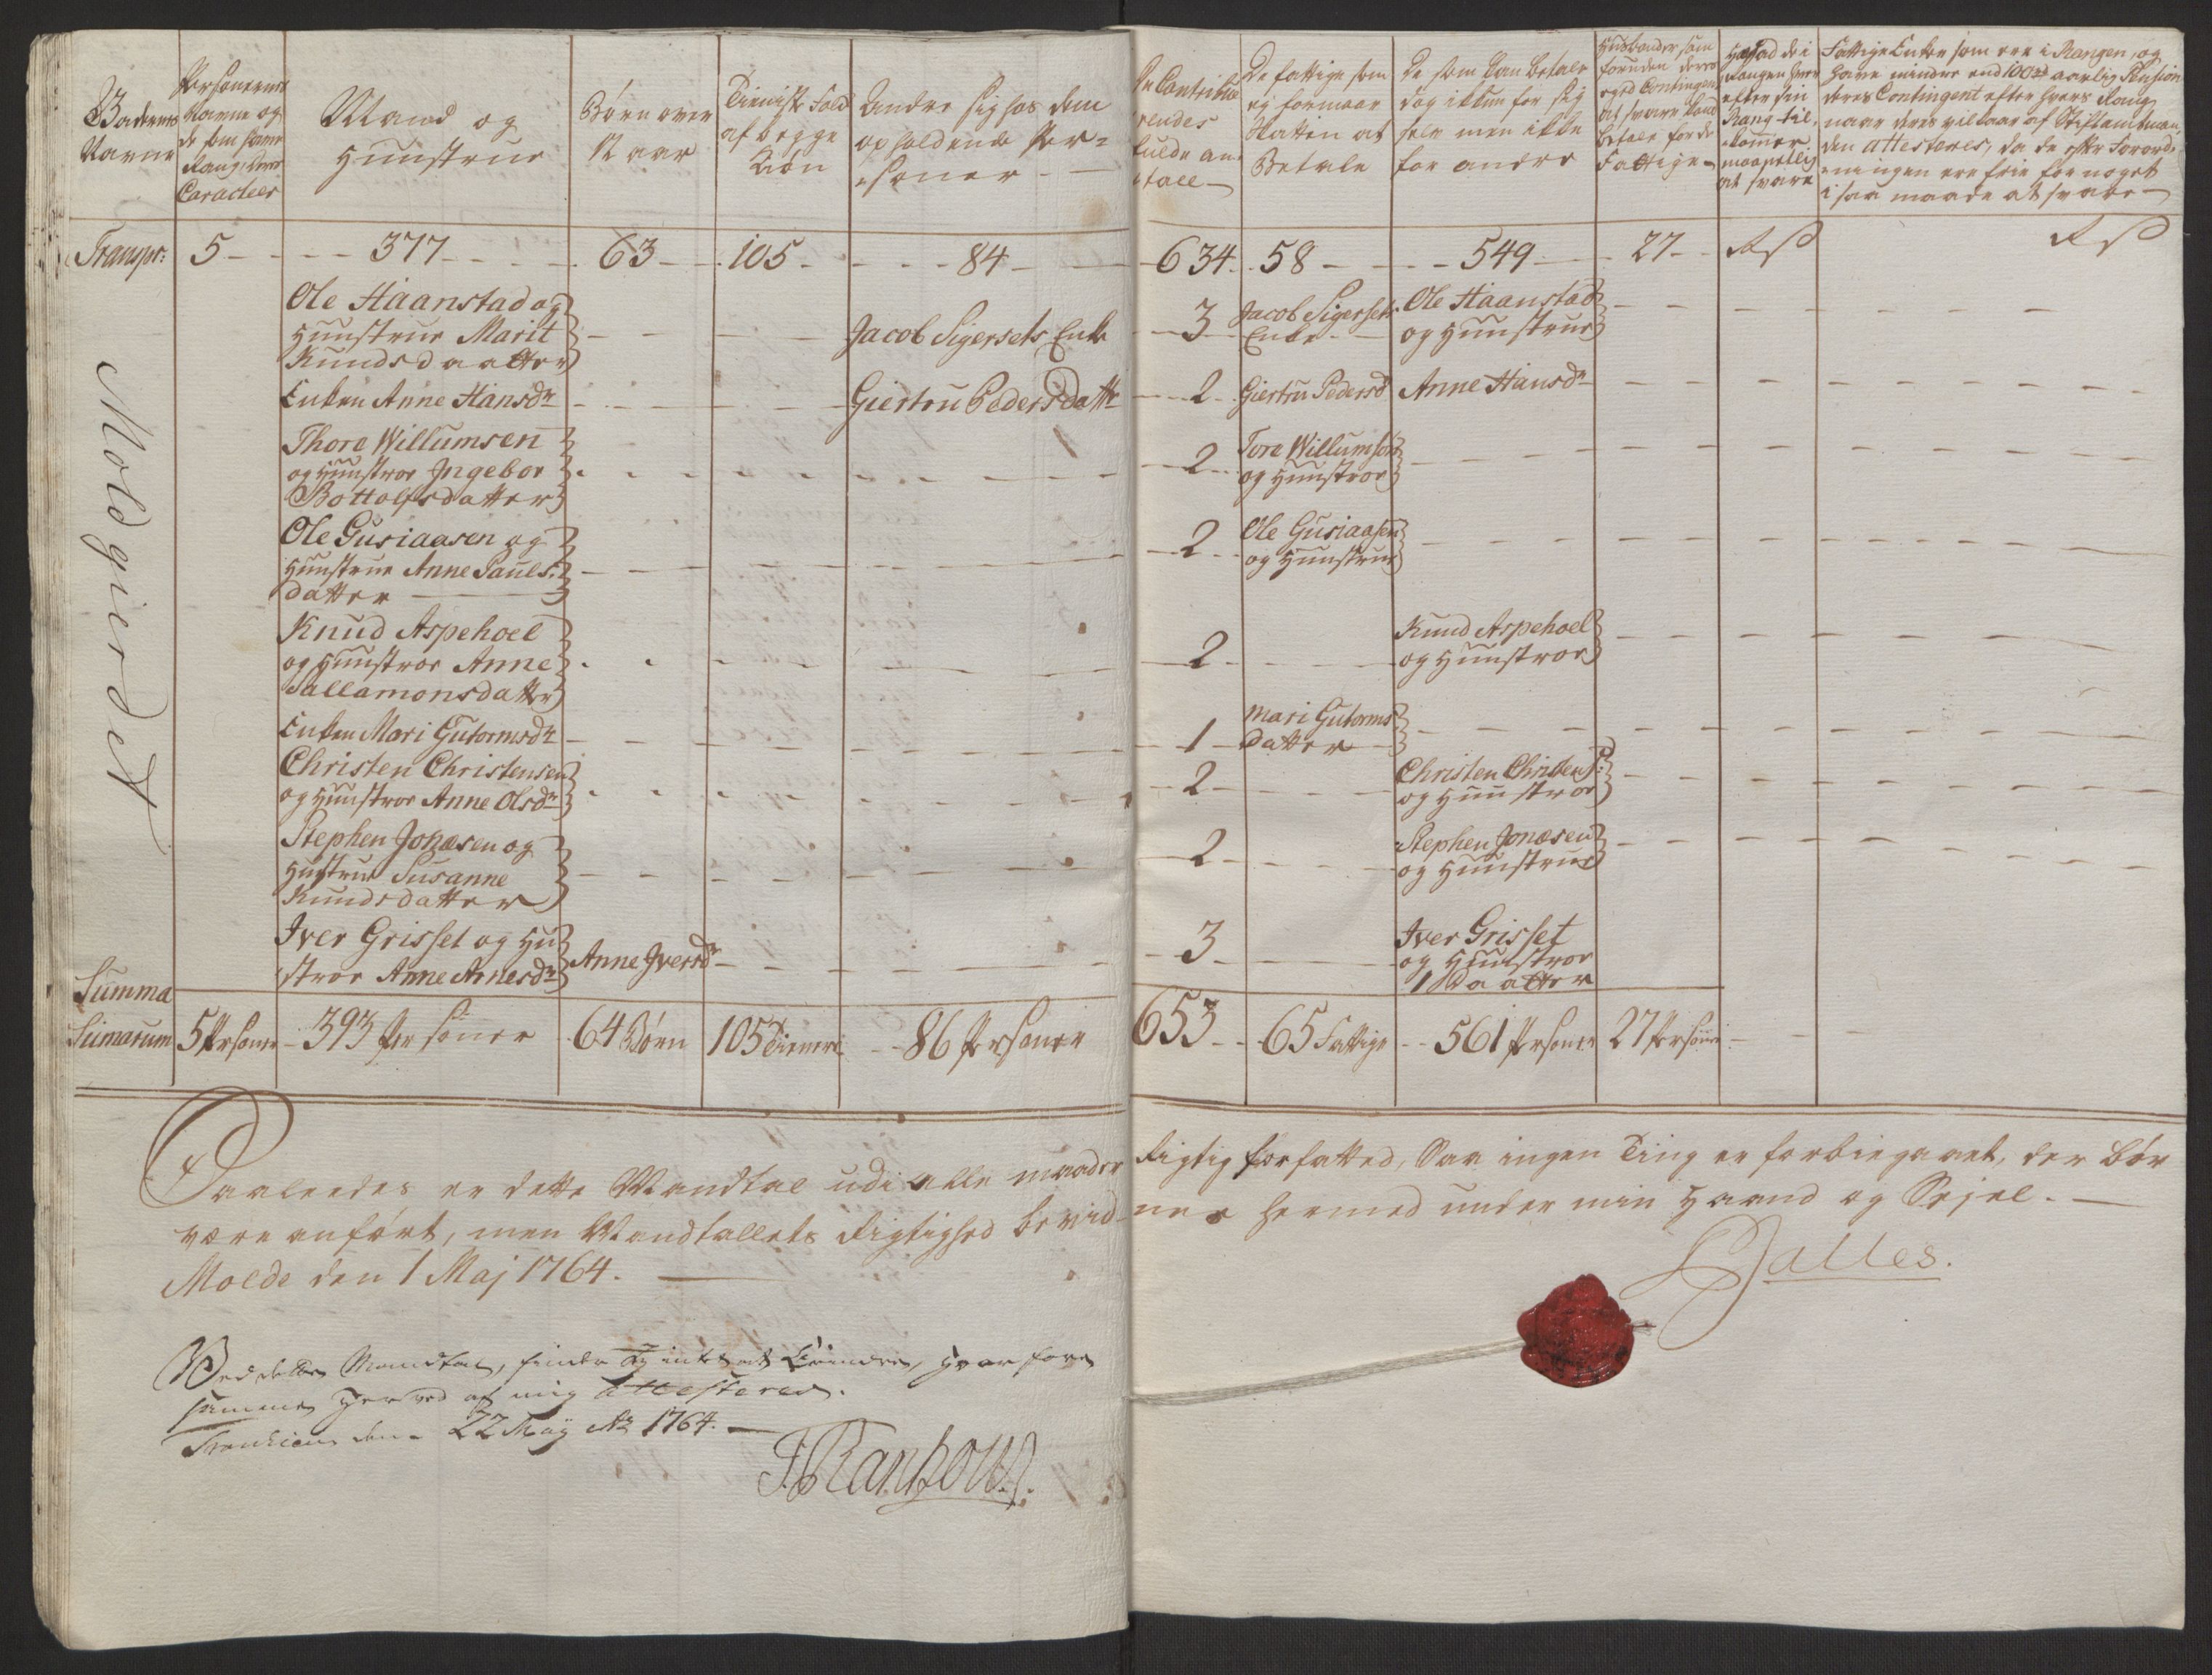 Stædernes
Navne
Persohnernes
Navne og
de som have
Rang, deres
Caracteer
Mand og
Hunstrue
Børn over
12 aar
Tieniste Folk
af begge
Kiøn
Andre sig hos dem
opholdende Per-
soner
De Contribue
rendes
fulde an-
tall
De fattige som
ey formaar
Skatten at
Betale
De som kan betale
dog ikkun for sig
selv men ikke
for andre
Husbonder som
foruden deres
eget Contingent
at svare kand
betale for de
Fattige
Hvad de i
Rangen hver
efter sin
Rang til-
kommer
maanetlig
at svare
Fattige Enker som ere i Rangen, og
have mindre end 100 rd aarlig Pension
deres Contingent efter hvers Rang
naar deres vilkaar af Stiftamtman
den attesteres, da de efter Forord-
ningen ere frie for noget
i saa maade at svare
Transpr: 5 377 63 105 84 634 58 549 27
Moldgierdet
Ole Haanstad og
Hunstrue Marit
Knudsdaatter
Jacob Sigersets Enke
3
Jacob Sigersets
Enke
Ole Haanstad
og Hunstrue
Enken Anne Hansdr
Giertru Pedersdattr
2
Giertru Pedersd
Anne Hansdr
Thore Willumsen
og Hunstroe Ingebor
Bottolfsdatter
2
Tore Willumsøn
og Hunstroe
Ole Gusiaasen og
Hunstrue Anne Pauls
datter
2
Ole Gusiaasen
og Hunstrue
Knud Aspehoel
og Hunstroe Anne
Sallamonsdatter
2
Knud Aspehoel
og Hunstroe
Enken Mari Gutormsdr
1
Mari Gutorms
datter
Christen Christensen
og Hunstroe Anne Olsdr
2
Christen Christens:
og Hunstroe
Stephen Jonæsen og
Hustrue Susanne
Knudsdatter
2
Stephen Jonæsen
og Hunstrue
Iver Grisset og Hu
stroe Anne Arnesdr
Anne Iversdr
3
Iver Grisset
og Hunstroe
1 Daatter
Summa
Sumarum 5 Personer 393 Personer 64 Børn 105 Tienere 86 Personer 653 65 Fattige 561 Personer 27 Personer
Saaleedes er dette Mandtal udi alle maader rigtig forfatted, Saa ingen Ting er forbiegaaet, der bør
være anført, men Mandtallets Rigtighed bevidnes hermed under min Haand og Sejel.
Molde den 1 Maj 1764.
Dalles.
Ved dette Mandtal, finder ieg intet at Erindre, hvorfore
samme herved af mig attesteres.
Tronhiem den 22 May Ao 1764.
FRantzow.